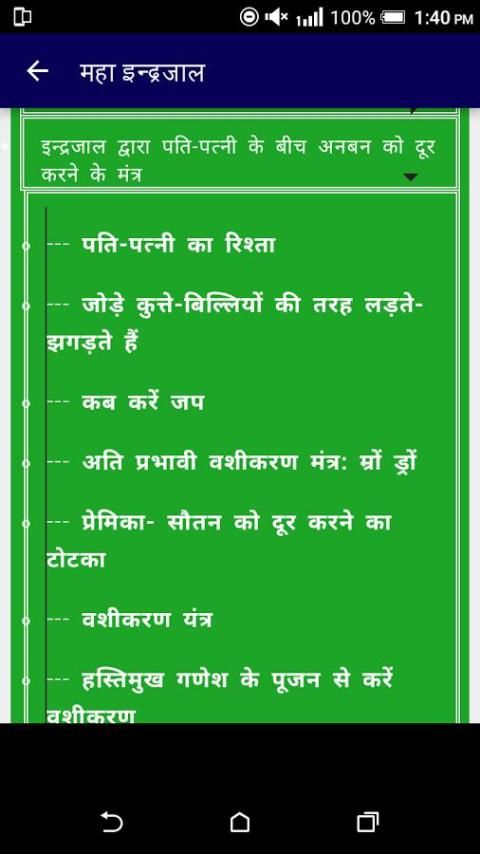 100% 1:40 PM
महा इन्द्रजाल
इन्द्रजाल द्वारा पति-पत्नी के बीच अनबन को दूर
करने के मंत्र
--- पति-पत्नी का रिश्ता
--- जोड़े कुत्ते-बिल्लियों की तरह लड़ते-
झगड़ते हैं
--- कब करें जप
--- अति प्रभावी वशीकरण मंत्र: म्रों ड्रों
--- प्रेमिका- सौतन को दूर करने का
टोटका
--- वशीकरण यंत्र
--- हस्तिमुख गणेश के पूजन से करें
वशीकरण